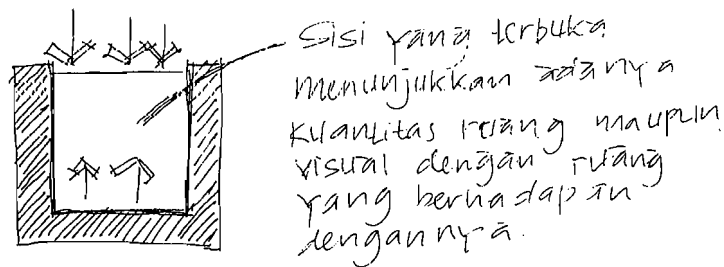 Sisi yang terbuka
menunjukkan adanya
kuantitas ruang maupun
visual dengan ruang
yang berhadapan
dengannya.